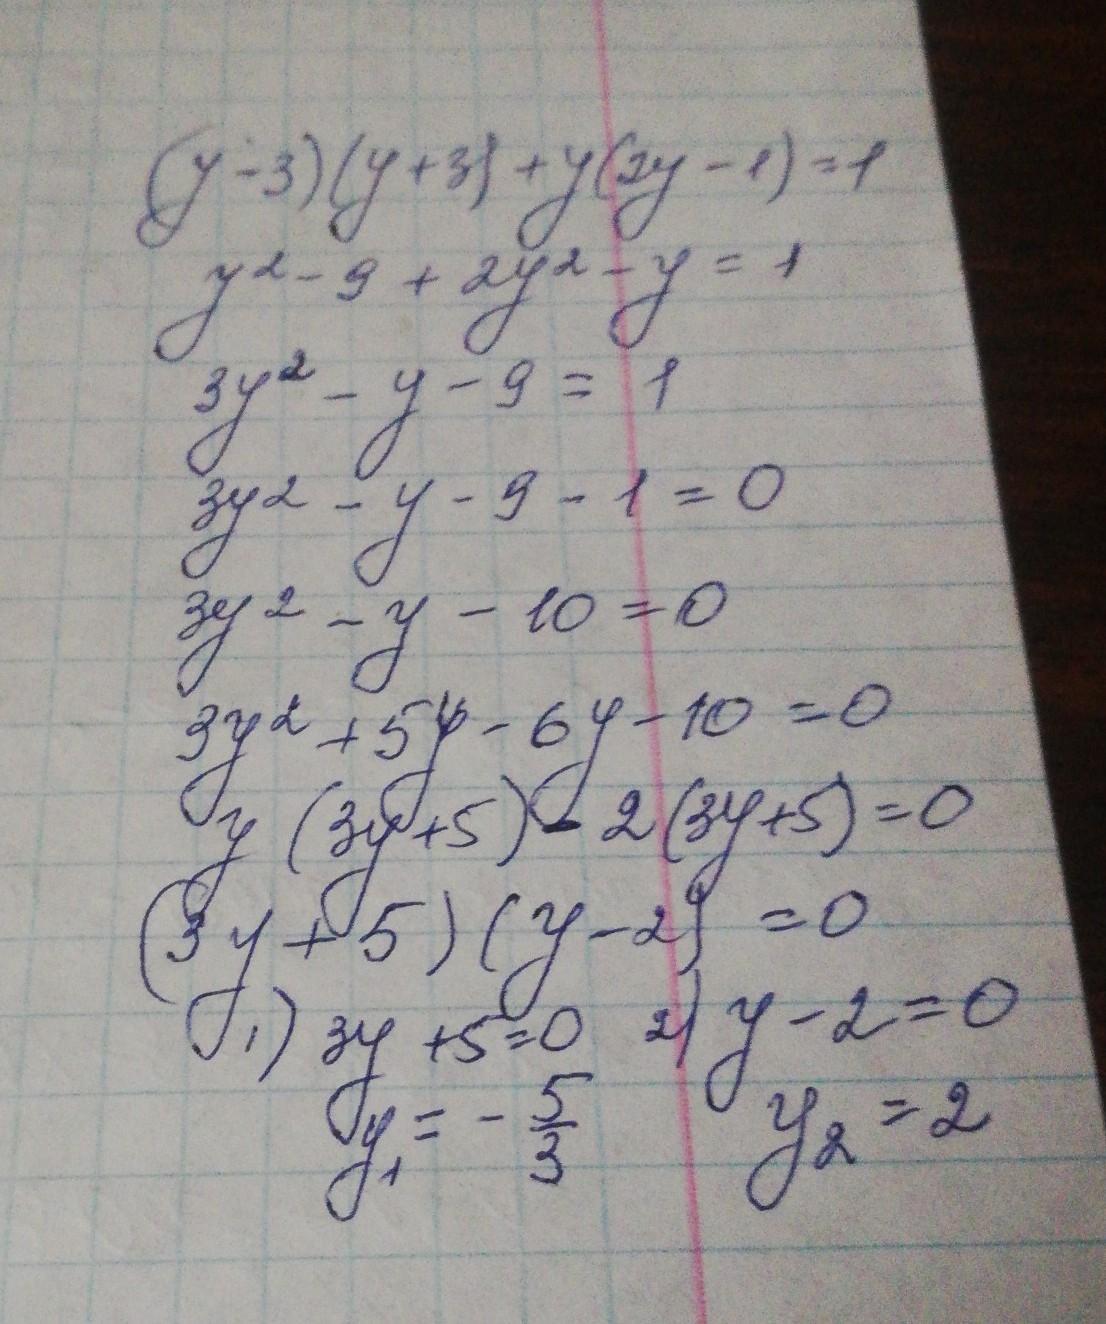 (y-3)(y+3)+y(2y-1)=1
y²-9+2y²-y=1
3y²-y-9=1
3y²-y-9-1=0
3y²-y-10=0
3y²+5y-6y-10=0
y(3y+5)-2(3y+5)=0
(3y+5)(y-2)=0
1) 3y+5=0 2) y-2=0
y₁=-5/3 y₂=2